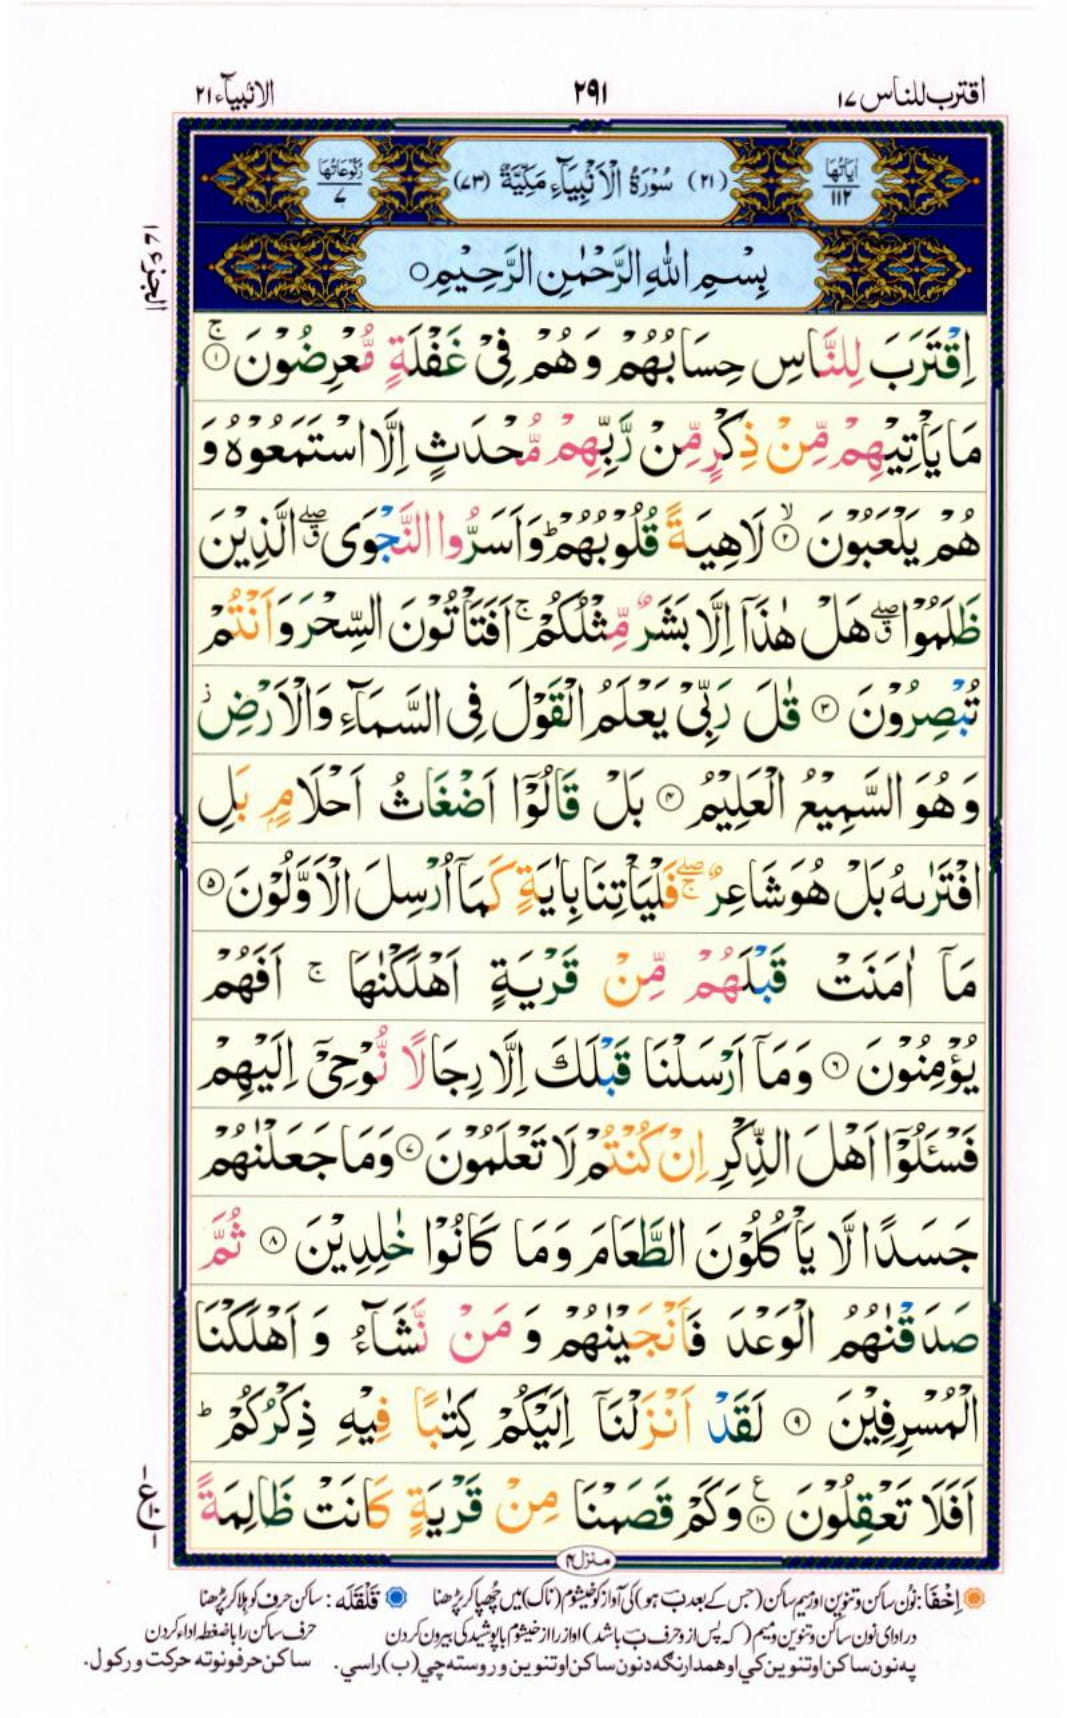 اقترب للناس ۱۷
۲۹۱
الانبیآء ۲۱
اٰیَاتُهَا ۱۱۲
(۲۱) سُوْرَةُ الْاَنْۢبِیَآءِ مَكِّیَّةٌ (۷۳)
رُكُوْعَاتُهَا ۷
الجزء ۱۷
بِسْمِ اللّٰهِ الرَّحْمٰنِ الرَّحِیْمِ ○
اِقْتَرَبَ لِلنَّاسِ حِسَابُهُمْ وَ هُمْ فِیْ غَفْلَةٍ مُّعْرِضُوْنَ ۚ ۱
مَا یَاْتِیْهِمْ مِّنْ ذِكْرٍ مِّنْ رَّبِّهِمْ مُّحْدَثٍ اِلَّا اسْتَمَعُوْهُ وَ
هُمْ یَلْعَبُوْنَ ۙ ۲ لَاهِیَةً قُلُوْبُهُمْ ؕ وَ اَسَرُّوا النَّجْوَی ۖۗ الَّذِیْنَ
ظَلَمُوْا ۖۗ هَلْ هٰذَاۤ اِلَّا بَشَرٌ مِّثْلُكُمْ ۚ اَفَتَاْتُوْنَ السِّحْرَ وَ اَنْتُمْ
تُبْصِرُوْنَ ۳ قٰلَ رَبِّیْ یَعْلَمُ الْقَوْلَ فِی السَّمَآءِ وَ الْاَرْضِ ؗ
وَ هُوَ السَّمِیْعُ الْعَلِیْمُ ۴ بَلْ قَالُوْۤا اَضْغَاثُ اَحْلَامٍۭ بَلِ
افْتَرٰىهُ بَلْ هُوَ شَاعِرٌ ۖۚ فَلْیَاْتِنَا بِاٰیَةٍ كَمَاۤ اُرْسِلَ الْاَوَّلُوْنَ ۵
مَاۤ اٰمَنَتْ قَبْلَهُمْ مِّنْ قَرْیَةٍ اَهْلَكْنٰهَا ۚ اَفَهُمْ
یُؤْمِنُوْنَ ۶ وَ مَاۤ اَرْسَلْنَا قَبْلَكَ اِلَّا رِجَالًا نُّوْحِیْۤ اِلَیْهِمْ
فَسْـَٔلُوْۤا اَهْلَ الذِّكْرِ اِنْ كُنْتُمْ لَا تَعْلَمُوْنَ ۷ وَ مَا جَعَلْنٰهُمْ
جَسَدًا لَّا یَاْكُلُوْنَ الطَّعَامَ وَ مَا كَانُوْا خٰلِدِیْنَ ۸ ثُمَّ
صَدَقْنٰهُمُ الْوَعْدَ فَاَنْجَیْنٰهُمْ وَ مَنْ نَّشَآءُ وَ اَهْلَكْنَا
الْمُسْرِفِیْنَ ۹ لَقَدْ اَنْزَلْنَاۤ اِلَیْكُمْ كِتٰبًا فِیْهِ ذِكْرُكُمْ ؕ
اَفَلَا تَعْقِلُوْنَ ۱۰ ع وَ كَمْ قَصَمْنَا مِنْ قَرْیَةٍ كَانَتْ ظَالِمَةً
منزل ۴
اِخْفَا: نُون ساکن و تنوین اور میم ساکن (جس کے بعد بَ ہو) کی آواز کو خیشوم (ناک) میں چُھپا کر پڑھنا قَلْقَلَه: ساکن حرف کو ہلا کر پڑھنا
در ادای نون ساکن و تنوین و میم (که پس از و حرف بَ باشد) اواز را از خیشوم با پوشیدگی بیرون کردن حرف ساکن را با ضغطه اداء کردن
په نون ساکن او تنوین کي او همدارنگه د نون ساکن او تنوین و روسته چي (ب) راسي. ساکن حرفو نو ته حرکت ورکول.